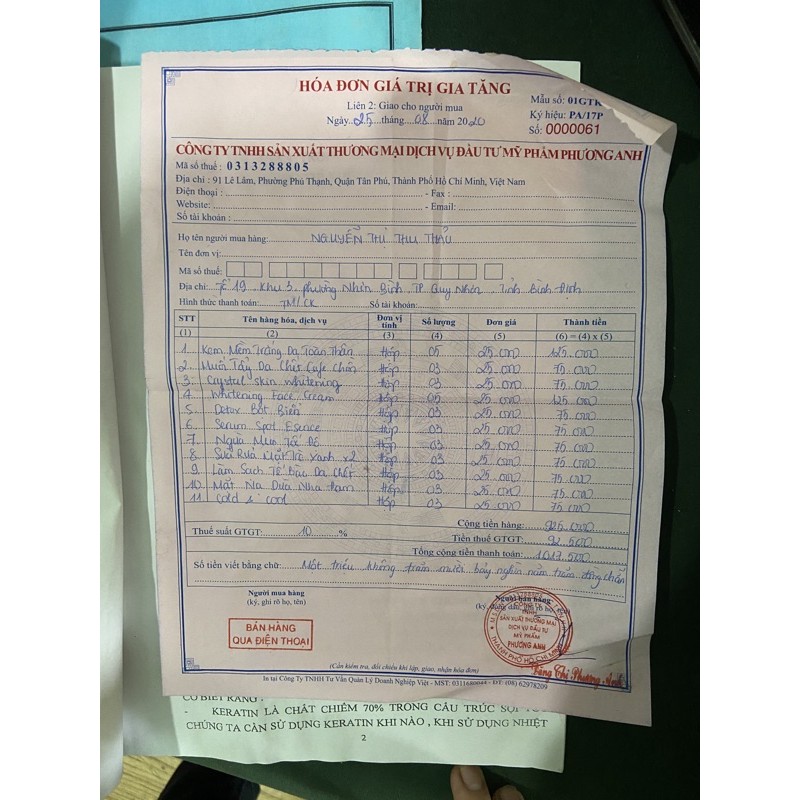 HÓA ĐƠN GIÁ TRỊ GIA TĂNG
Liên 2: Giao cho người mua
Ngày..25....tháng....08....năm 2020
Mẫu số: 01GTK
Ký hiệu: PA/17P
Số: 0000061
CÔNG TY TNHH SẢN XUẤT THƯƠNG MẠI DỊCH VỤ ĐẦU TƯ MỸ PHẨM PHƯƠNG ANH
Mã số thuế : 0313288805
Địa chỉ : 91 Lê Lâm, Phường Phú Thạnh, Quận Tân Phú, Thành Phố Hồ Chí Minh, Việt Nam
Điện thoại : - Fax :
Website: - Email:
Số tài khoản :
Họ tên người mua hàng: NGUYỄN THỊ THU THẢO
Tên đơn vị:
Mã số thuế:
Địa chỉ: Tổ 19, Khu 3, phường Nhơn Bình, TP Quy Nhơn, Tỉnh Bình Định
Hình thức thanh toán: TM/CK Số tài khoản:
STT Tên hàng hóa, dịch vụ Đơn vị tính Số lượng Đơn giá Thành tiền
(1) (2) (3) (4) (5) (6) = (4) x (5)
1 Kem Mềm Trắng Da Toàn Thân Hộp 05 25.000 125.000
2 Muối Tẩy Da Chết Cafe Hộp 03 25.000 75.000
3 Crystal skin whitening Hộp 03 25.000 75.000
4 Whitening Face Cream Hộp 05 25.000 125.000
5 Detox Bọt Biển Hộp 03 25.000 75.000
6 Serum Spot Esence Hộp 03 25.000 75.000
7 Ngừa Mụn Tế Hộp 03 25.000 75.000
8 Sữa Rửa Mặt Trà Xanh x2 Hộp 03 25.000 75.000
9 Làm Sạch Tế Bào Da Chết Hộp 03 25.000 75.000
10 Mặt Nạ Dừa Nha Đam Hộp 03 25.000 75.000
11 Cold & Cool Hộp 03 25.000 75.000
Cộng tiền hàng: 925.000
Thuế suất GTGT: 10 % Tiền thuế GTGT: 92.500
Tổng cộng tiền thanh toán: 1.017.500
Số tiền viết bằng chữ: Một triệu không trăm mười bảy nghìn năm trăm đồng chẵn
Người mua hàng
(ký, ghi rõ họ, tên)
Người bán hàng
BÁN HÀNG
QUA ĐIỆN THOẠI
SẢN XUẤT THƯƠNG MẠI
DỊCH VỤ ĐẦU TƯ
MỸ PHẨM
PHƯƠNG ANH
THÀNH PHỐ HỒ CHÍ MINH
(Cần kiểm tra, đối chiếu khi lập, giao, nhận hóa đơn)
In tại Công Ty TNHH Tư Vấn Quản Lý Doanh Nghiệp Việt - MST: - ĐT: (08) 62978209
CÓ BIẾT RẰNG :
- KERATIN LÀ CHẤT CHIẾM 70% TRONG CẤU TRÚC SỢI
CHÚNG TA CẦN SỬ DỤNG KERATIN KHI NÀO , KHI SỬ DỤNG NHIỆT
2